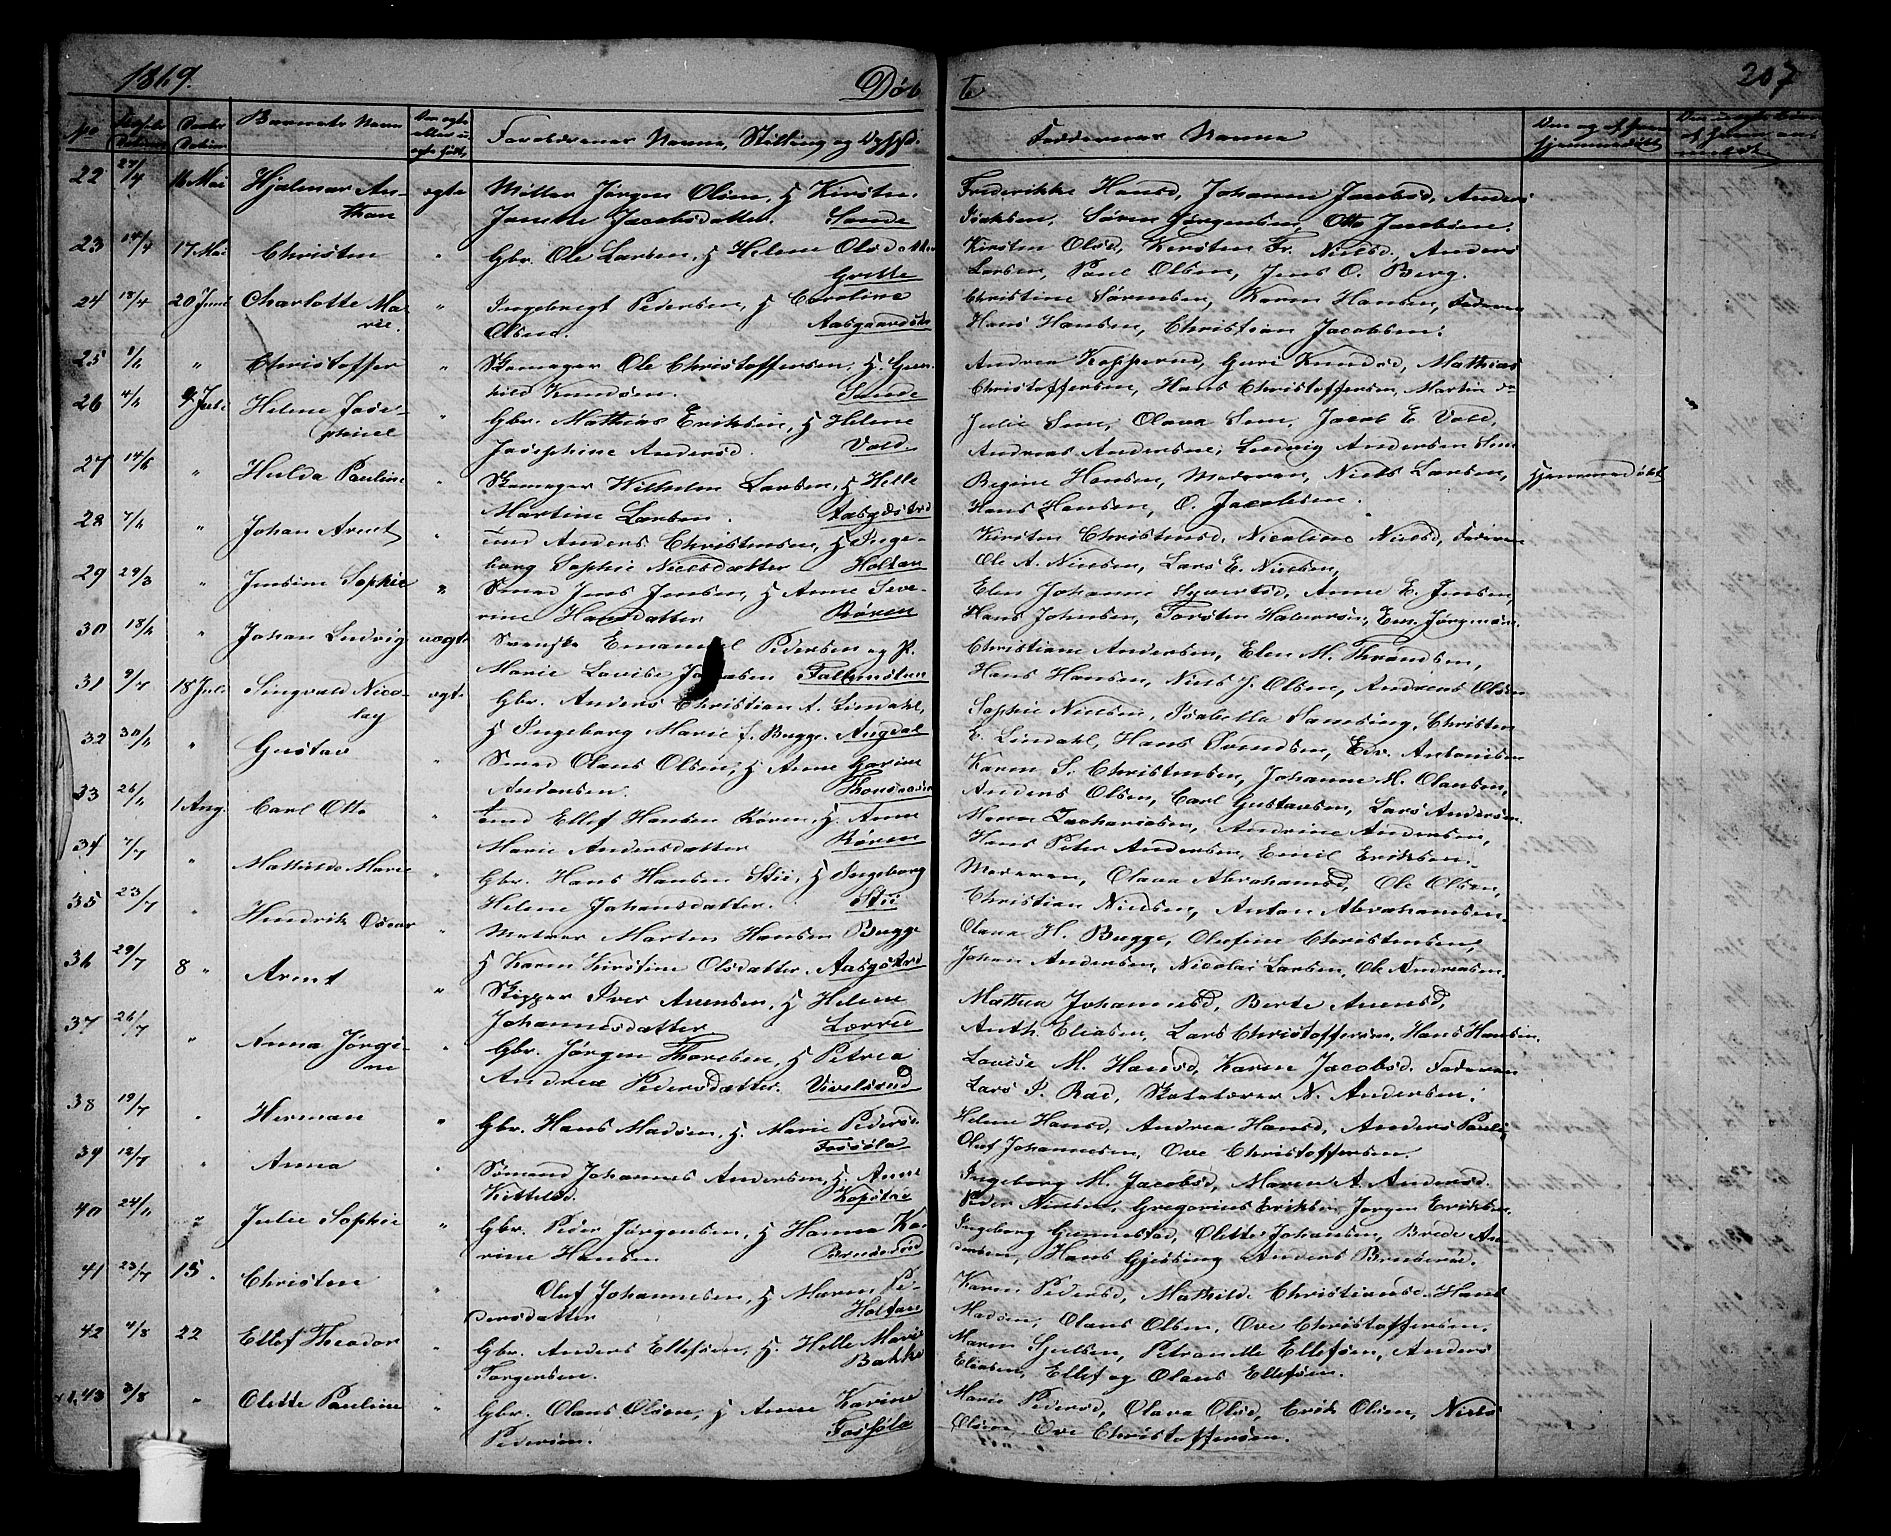 1869. Døb te 207
No Barnets Navn Forældrenes Navne, Stilling og Faddernes Navne
22 27/4 16 Mai Hjalmar An- ægte Jørgen Olsen, H Kirsten Frederikke Hansd, Johanne Jacobsd, Anders
than Janette Jacobsdatter. Sande Isaksen, Søren Jørgensen, Otto Jacobsen.
23 14/4 17 Mai Christen " Gbr. Ole Larsen, H Helene Olsdatter Kirsten Olsd, Kirsten Fr. Nielsd, Anders
Grette Larsen, Paul Olsen, Jens O. Berg.
24 18/4 20 Juni Charlotte Ma- " Ingebregt Pedersen, H Caroline Christine Sørensen, Karen Hansen, Faderen
rie. Olsen. Aasgaardstr Hans Hansen, Christian Jacobsen.
25 " Christoffer " Skomager Ole Christoffersen, H. Gun- Andrea Kopperud, Guri Knudsd, Mathias
hild Knudsen. Sande Christoffersen, Hans Christoffersen, Martin do
26 4/6 4 Juli Helene Jose- " Gbr. Mathias Eriksen, H Helene Julie Sem, Olava Sem, Jacob E Vold,
phine Josephine Andersd. Vold. Andreas Andersen, Ludvig Andersen Sem
27 14/6 " Hulda Pauline " Skomager Wilhelm Larsen, H Helle Regine Hansen, Moderen, Niels Larsen, Hjemmedøbt
Martine Larsen. Aasgdstrd Hans Hansen, O. Jacobsen.
28 7/6 " Johan Arnt " Anders Christensen, H Inge- Kirsten Christensd, Nicoline Nielsd, Faderen
borg Sophie Nielsdatter Holtan Ole A. Nielsen, Lars E. Nielsen,
29 29/3 " Jensine Sophie " Smed Jens Jensen, H Anne Seve- Elen Johanne Syvertsd, Anne E. Jensen,
rine Hansdatter Røren Hans Johnsen, Torsten Halvorsen, Em. Jørgensen.
30 18/6 " Johan Ludvig uægte Svenske Emanuel Pedersen og P. Christiane Andersen, Elen M. Throndsen,
Marie Lovise Falkensten Hans Hansen, Niels J. Olsen, Andreas Olsen
31 9/4 18 Juli Singvald Nico- ægte Gbr. Anders Christian A. Lindahl, Sophie Nielsen, Isabella Samsing, Christen
lay H Ingeborg Marie f. Bugge. Augdal E. Lindahl, Hans Svendsen, Edv. Antonisen
32 30/6 " Gustav " Smed Olaus Olsen, H Anne Karine Karen S. Christensen, Johanne M. Olausen,
Andersen. Anders Olsen, Carl Gustavsen, Lars Andersen.
33 26/6 1 Aug. Carl Otto " Ellef Hansen Røren, H. Anne Maren Zachariasen, Andrine Andersen,
Marie Andersdatter Røren Hans Peter Andersen, Emil Eriksen.
34 7/7 " Mathilde Marie Gbr. Hans Hansen Stie, H Ingeborg Moderen, Olava Abrahamsd, Ole Olsen,
Helene Johansdatter. Stie Christian Nielsen, Anton Abrahamsen.
35 23/7 " Hendrik Oscar " Matros Morten Hansen Bugge Olava H. Bugge, Olufine Christensen,
H Karen Kirstine Olsdatter. Aasgdstrd Johan Andersen, Nicolai Larsen, Ole Andreasen.
36 29/7 8 " Arent " Skipper Iver Arensen, H Helene Mathea Johannesd, Berte Arensd,
Johannesdatter Lørrie Anth. Eliasen, Lars Christoffersen, Hans Hansen.
37 26/7 " Anna Jørgi- " Gbr. Jørgen Thoresen, H Petrea Lovise M. Hansd, Karen Jacobsd. Faderen
ne Andrea Pedersdatter. Vivelstad Lars P. Rad, Skolelærer N. Andersen.
38 19/7 " Herman " Gbr. Hans Madsen, H. Marie Pedersd. Helene Hansd, Andrea Hansd, Anders
Fossøla Oluf Johannesen, Ove Christoffersen.
39 12/7 " Anna " Sømand Johannes Andersen, H. Anne Ingeborg M. Jacobsd, Maren A. Andersd.
Kittilsd. Kopstad Peder Nielsen, Gregorius Eriksen, Jørgen Eriksen.
40 24/6 " Julie Sophie " Gbr. Peder Jørgensen, H Hanna Ka- Ingeborg Gunnestad, Olette Johansen, Brede An-
rine Hansen. dersen, Hans Gjøsbing Anders
41 23/7 15 " Christen " Oluf Johannesen, H Maren Pe- Karen Pedersd, Mathilde Christiansd. Hans
dersdatter Holtan Madsen, Olaus Olsen, Ove Christoffersen.
42 4/8 22 Ellef Theodor " Gbr. Anders Ellefsen, H. Helle Marie Maren Sjulsen, Petronelle Ellefsen, Anders
Torgersen. Bakke Eliasen, Ellef og Olaus Ellefsen.
43 3/8 " Olette Pauline " Gbr. Olaus Olsen, H Anne Karine Marie Pedersd, Olava Olsd, Erik Olsen, Niels
Pedersen. Fossøla Olsen, Ove Christoffersen.